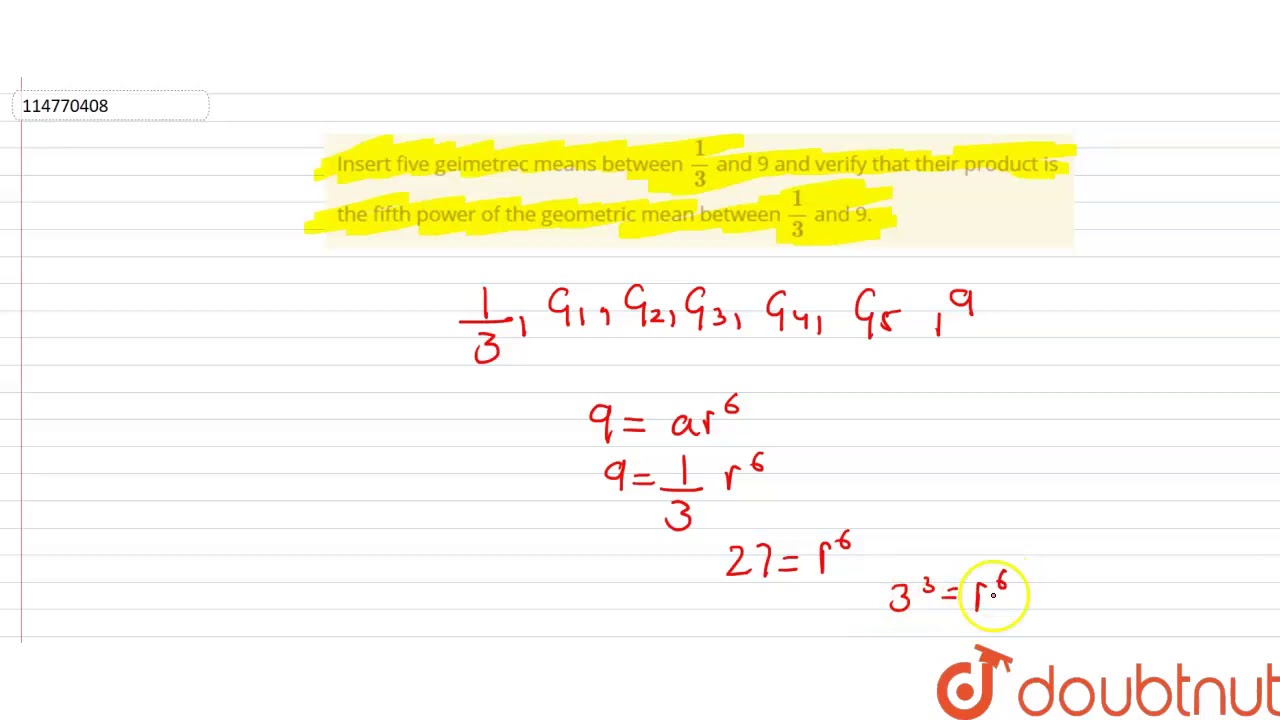 114770408
Insert five geimetrec means between 1/3 and 9 and verify that their product is
the fifth power of the geometric mean between 1/3 and 9.
1/3, G₁, G₂, G₃, G₄, G₅, 9
9 = ar⁶
9 = 1/3 r⁶
27 = r⁶
3³ = r⁶
doubtnut